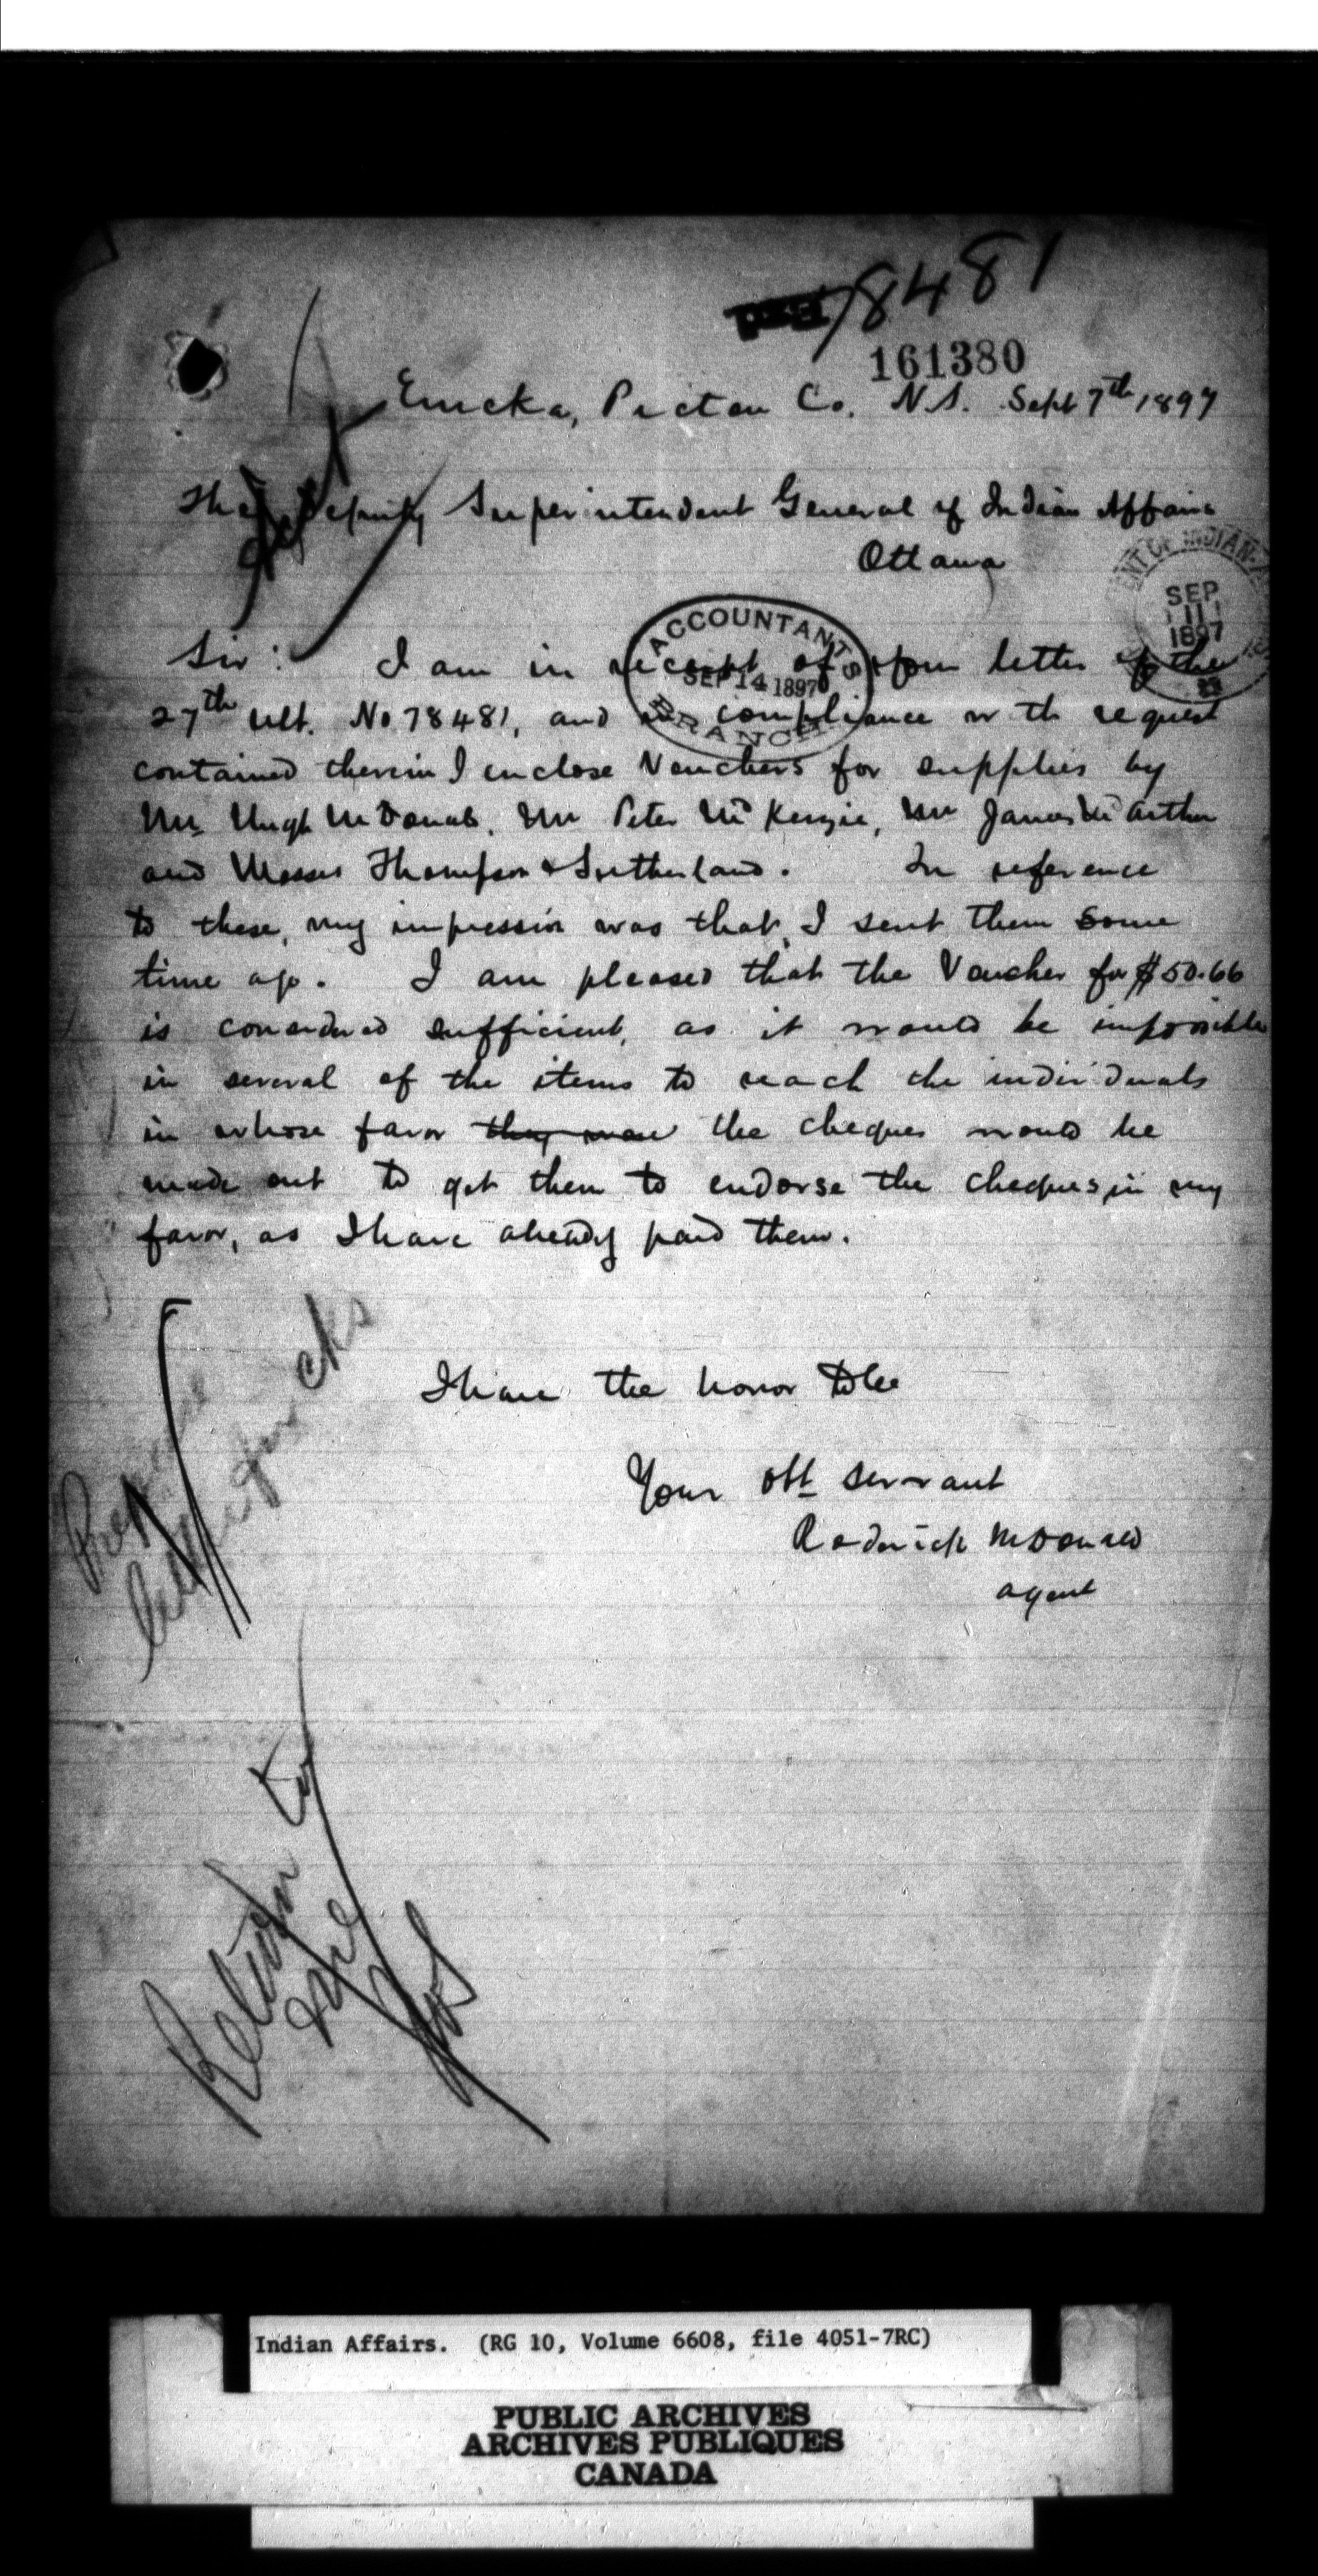 78481
161380
Eureka, Pictou Co. N.S. Sept 7th 1897
The Deputy Superintendent General of Indian Affairs
Ottawa
DEPARTMENT OF INDIAN
SEP
11
1897
ACCOUNTANTS
SEP 14 1897
BRANCH
Sir: I am in receipt of your letter of the
27th ult. No 78481, and in compliance with request
contained therein I enclose Vouchers for supplies by
Mr. Hugh McDonald, Mr Peter McKenzie, Mr James McArthur
and Messrs Thompson & Sutherland. In reference
to these, my impression was that, I sent them some
time ago. I am pleased that the Voucher for $50.66
is considered sufficient, as it would be impossible
in several of the items to reach the individuals
in whose favor they were the cheques would be
made out to get them to endorse the cheques, in my
favor, as I have already paid them.
I have the honor to be
Your obt servant
Roderick McDonald
agent
for cks
Return to
me
Indian Affairs. (RG 10, Volume 6608, file 4051-7RC)
PUBLIC ARCHIVES
ARCHIVES PUBLIQUES
CANADA